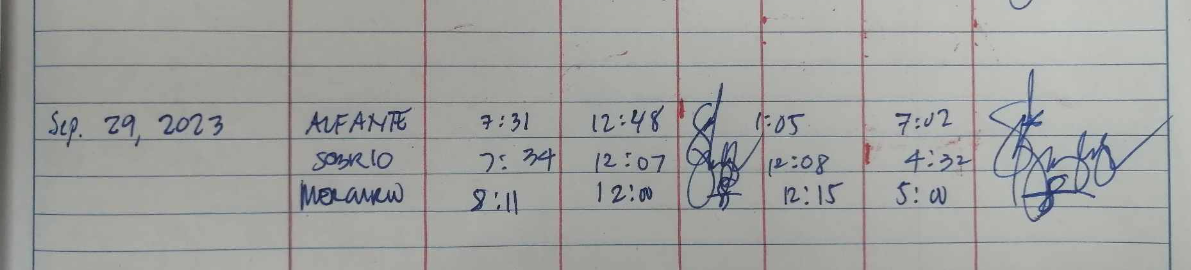 Sep. 29, 2023 ALFANTE 7:31 12:48 1:05 7:02
SOBRIO 7:34 12:07 12:08 4:32
8:11 12:00 12:15 5:00